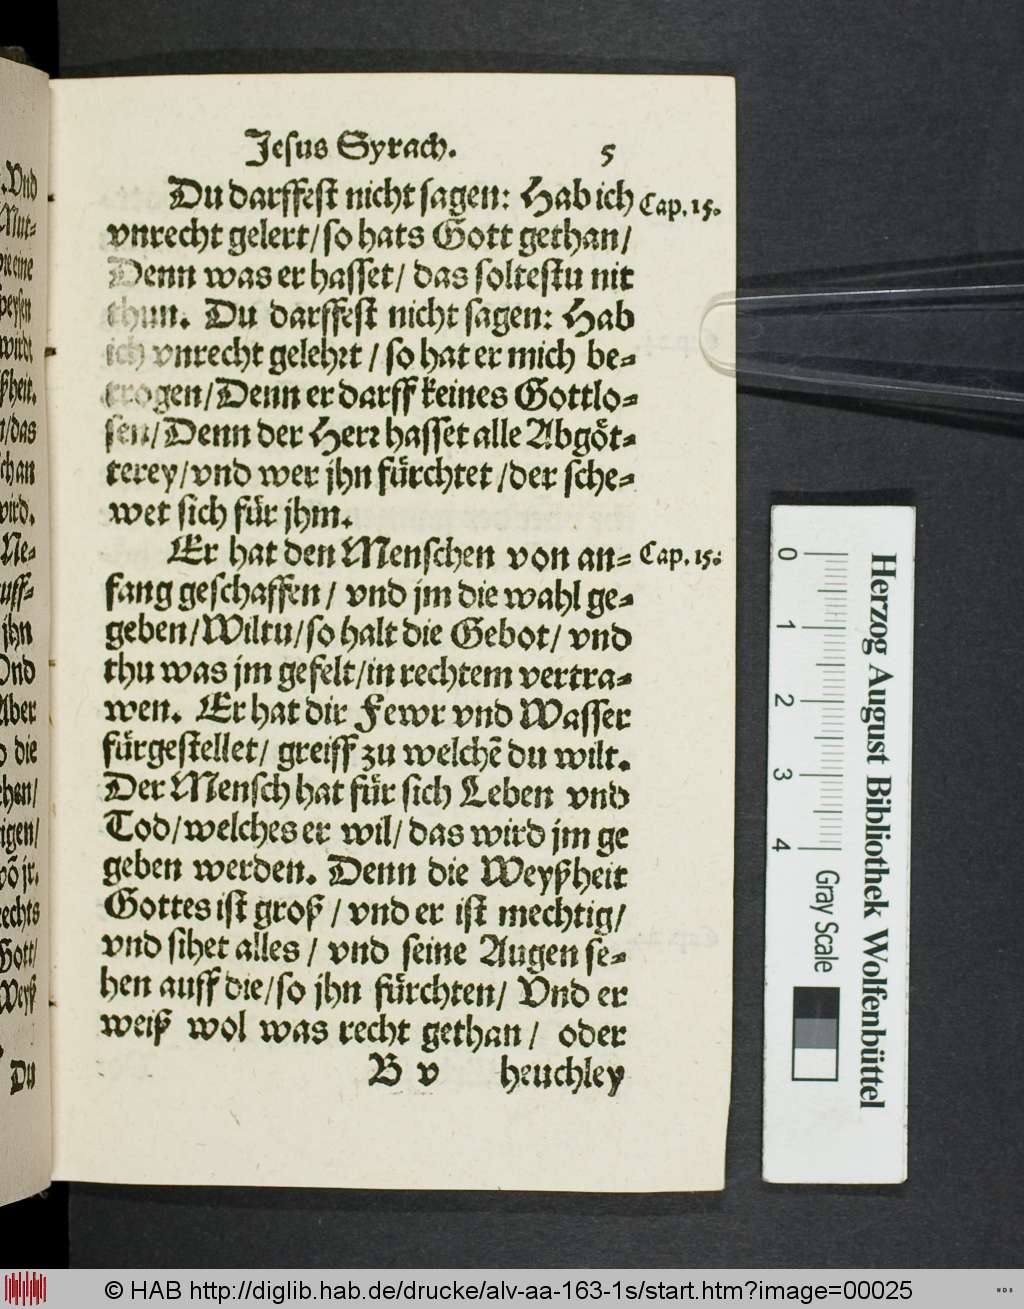 Jesus Syrach. 5
Du darffest nicht sagen: Hab ich Cap. 15.
vnrecht gelert/ so hats Gott gethan/
Denn was er hasset/ das soltestu nit
thun. Du darffest nicht sagen: Hab
ich vnrecht gelehrt / so hat er mich be-
trogen/ Denn er darff keines Gottlo-
sen/ Denn der Herr hasset alle Abgöt-
terey/ vnd wer jhn fürchtet / der sche-
wet sich für jhm.
Er hat den Menschen von an- Cap. 15.
fang geschaffen / vnd jm die wahl ge-
geben/ Wiltu/ so halt die Gebot/ vnd
thu was jm gefelt/ in rechtem vertra-
wen. Er hat dir Fewr vnd Wasser
fürgestellet/ greiff zu welchē du wilt.
Der Mensch hat für sich Leben vnd
Tod/ welches er wil/ das wird jm ge
geben werden. Denn die Weyßheit
Gottes ist groß / vnd er ist mechtig/
vnd sihet alles / vnd seine Augen se-
hen auff die/ so jhn fürchten/ Vnd er
weiß wol was recht gethan / oder
B v heuchley
.Vnd
Mut-
wirdt
ßheit.
/das
wird.
Ne-
auff-
jhn
Vnd
Aber
die
igen/
vō jr.
rechts
Gott/
Weyß
Du
0 1 2 3 4
Gray Scale
Herzog August Bibliothek Wolfenbüttel
© HAB http://diglib.hab.de/drucke/alv-aa-163-1s/start.htm?image=00025